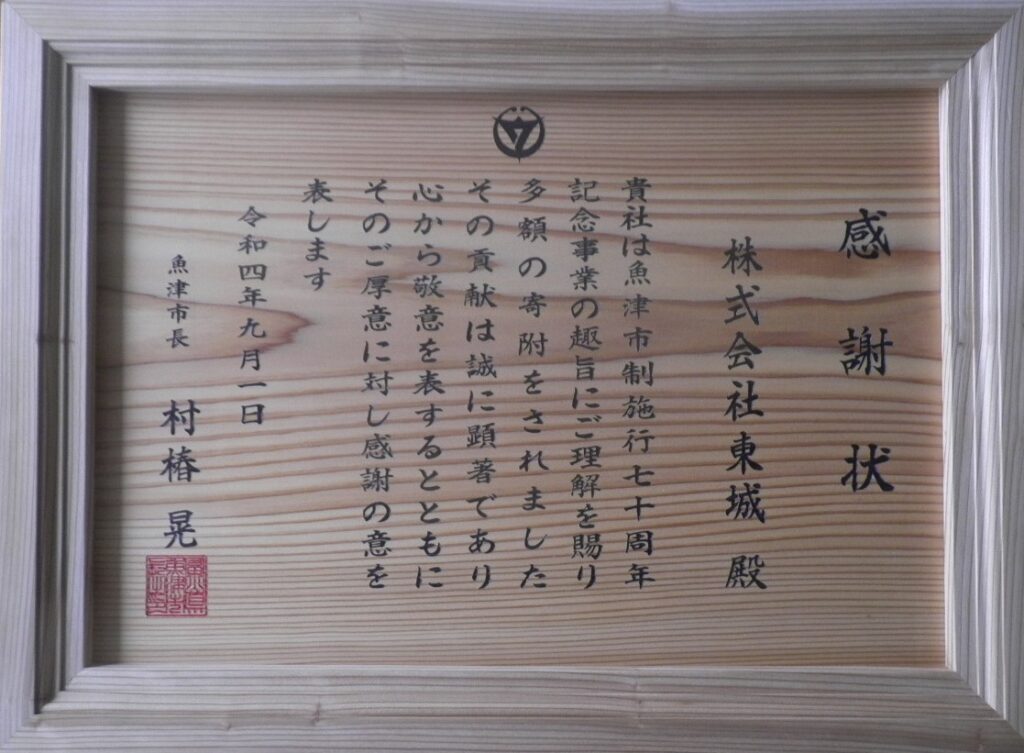 感謝状
株式会社東城 殿
貴社は魚津市制施行七十周年
記念事業の趣旨にご理解を賜り
多額の寄附をされました
その貢献は誠に顕著であり
心から敬意を表するとともに
そのご厚意に対し感謝の意を
表します
令和四年九月一日
魚津市長 村椿 晃